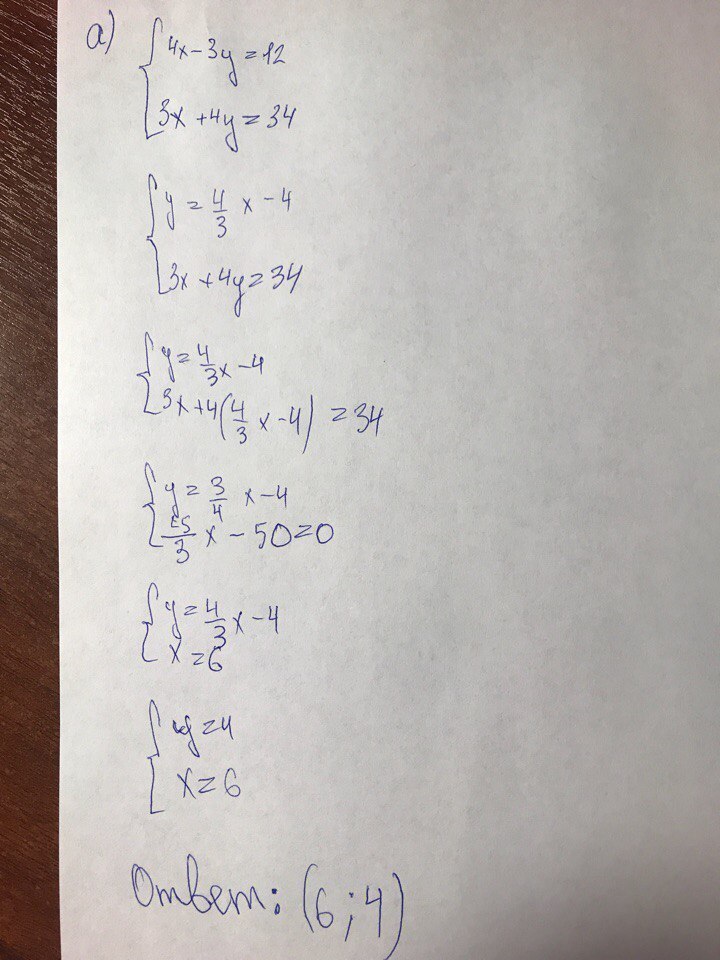 а)
4x-3y=12
3x+4y=34
y=4/3 x-4
3x+4y=34
y=4/3 x-4
3x+4(4/3 x-4)=34
y=3/4 x-4
/3 x-50=0
y=4/3 x-4
x=6
y=4
x=6
Ответ: (6;4)